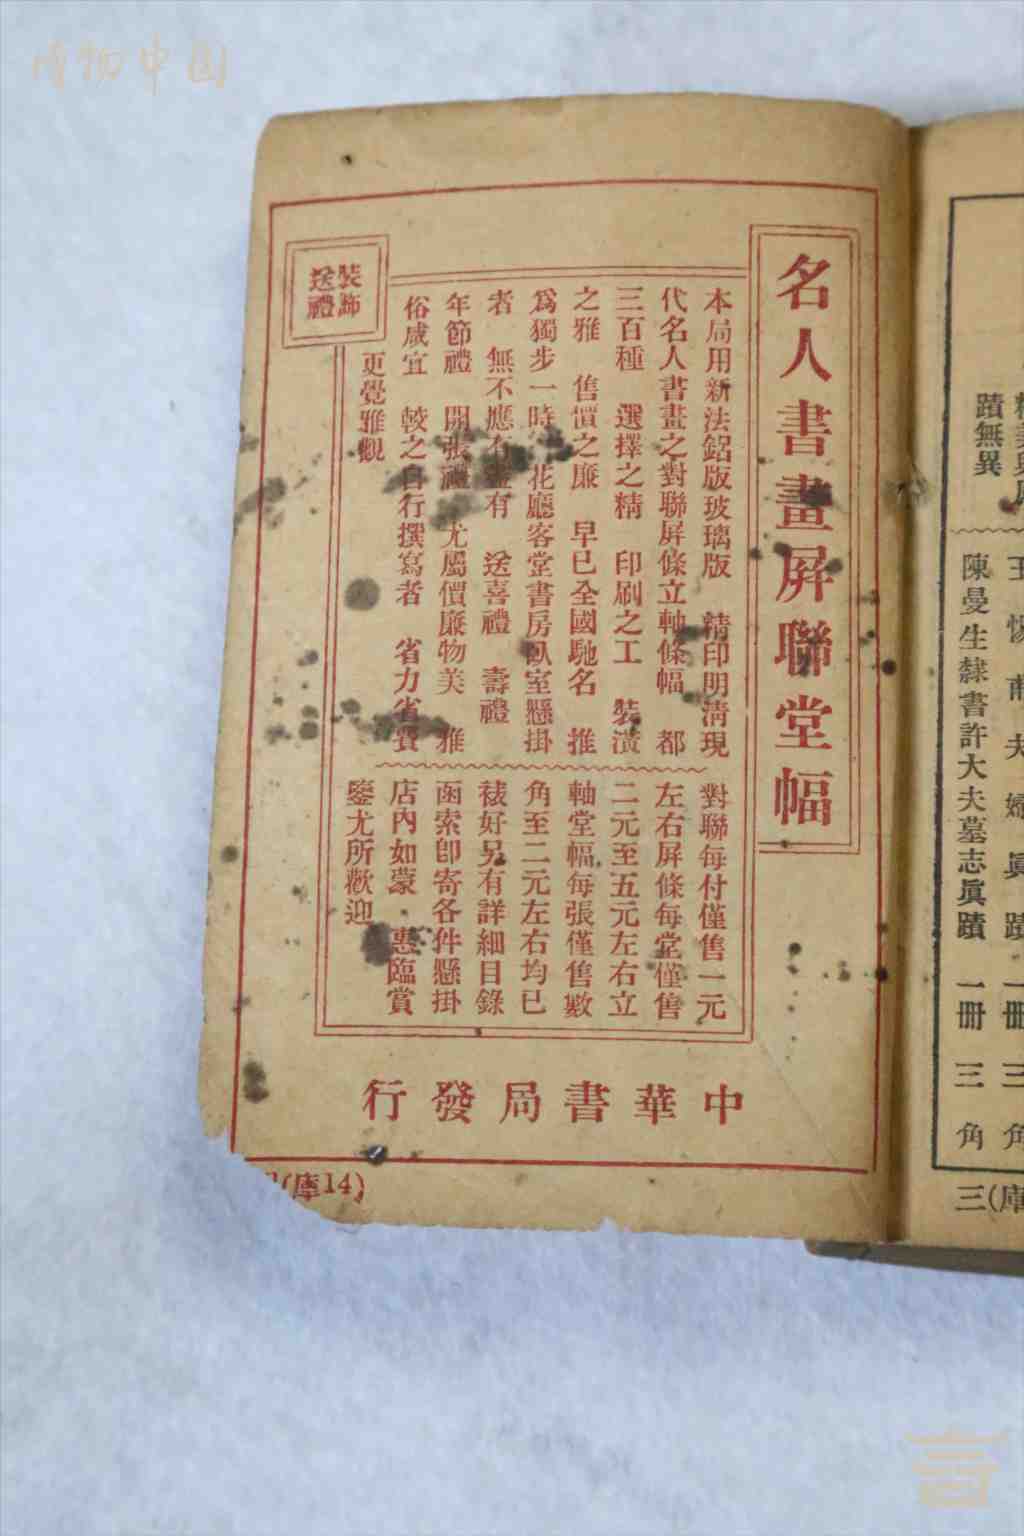 博物中国
名人書畫屏聯堂幅
本局用新法鋁版玻璃版　精印明清現
代名人書畫之對聯屏條立軸條幅　都
三百種　選擇之精　印刷之工　裝潢
之雅　售價之廉　早已全國馳名　推
爲獨步一時　花廳客堂書房臥室懸掛
者　無不應有盡有　送喜禮　壽禮
年節禮　開張禮　尤屬價廉物美　雅
俗咸宜　較之自行撰寫者　省力省費
更覺雅觀
裝飾
送禮
對聯每付僅售一元
左右屏條每堂僅售
二元至五元左右立
軸堂幅每張僅售數
角至二元左右均已
裱好另有詳細目錄
函索卽寄各件懸掛
店內如蒙　惠臨賞
鑒尤所歡迎
中華書局發行
(庫14)
蹟無異
夫婦眞蹟　一冊　三角
陳曼生隸書許大夫墓志眞蹟　一冊　三角
三(庫